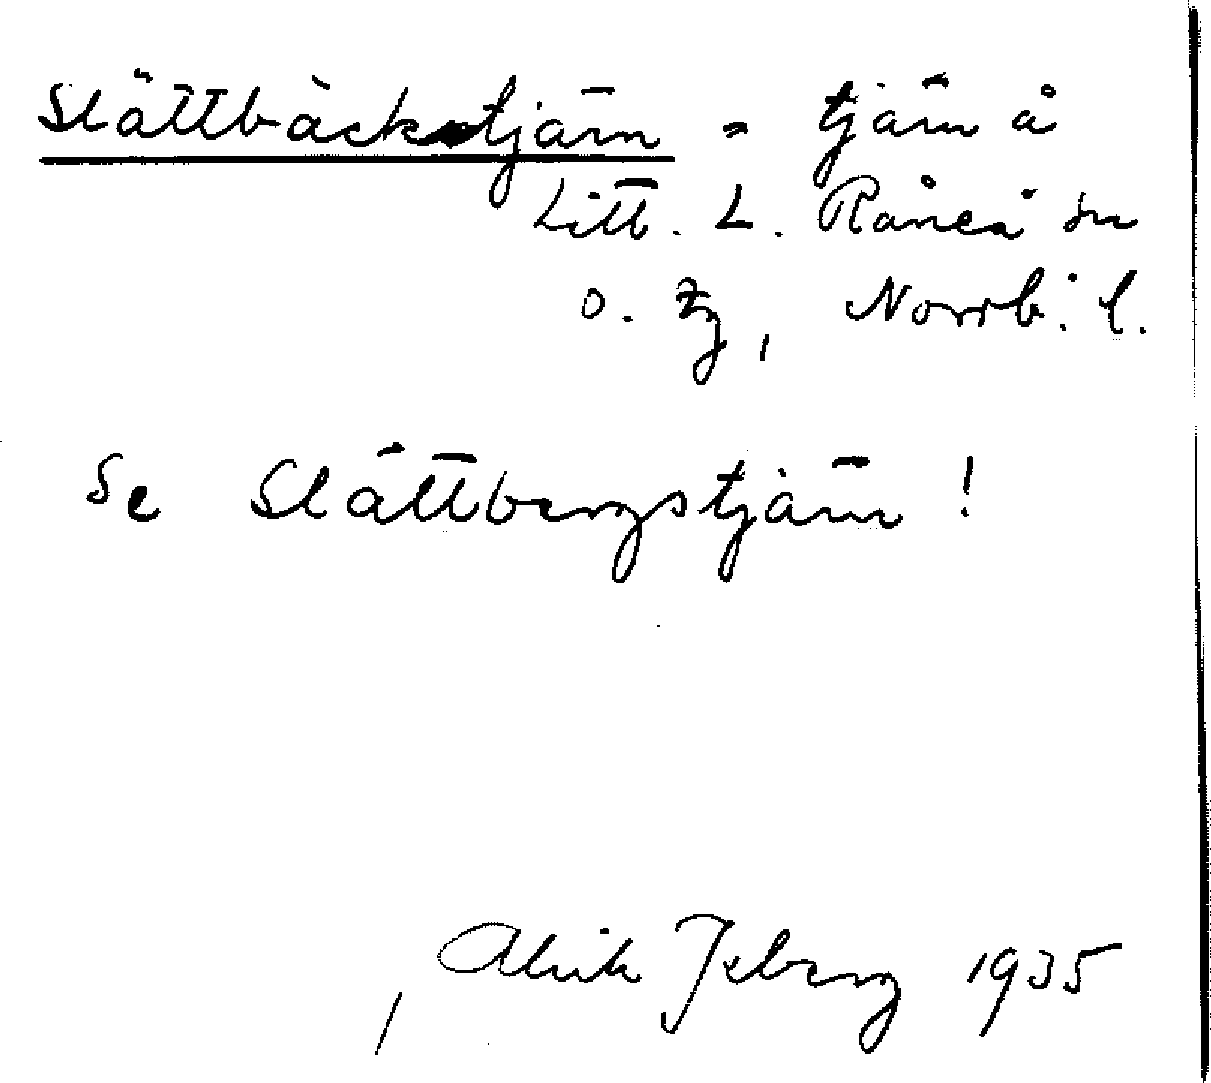 Slättbäckstjärn = tjärn å
Litt. L. Råneå sn
o. tg, Norrb:. l.
Se Slättbergstjärn!
Alrik 1935